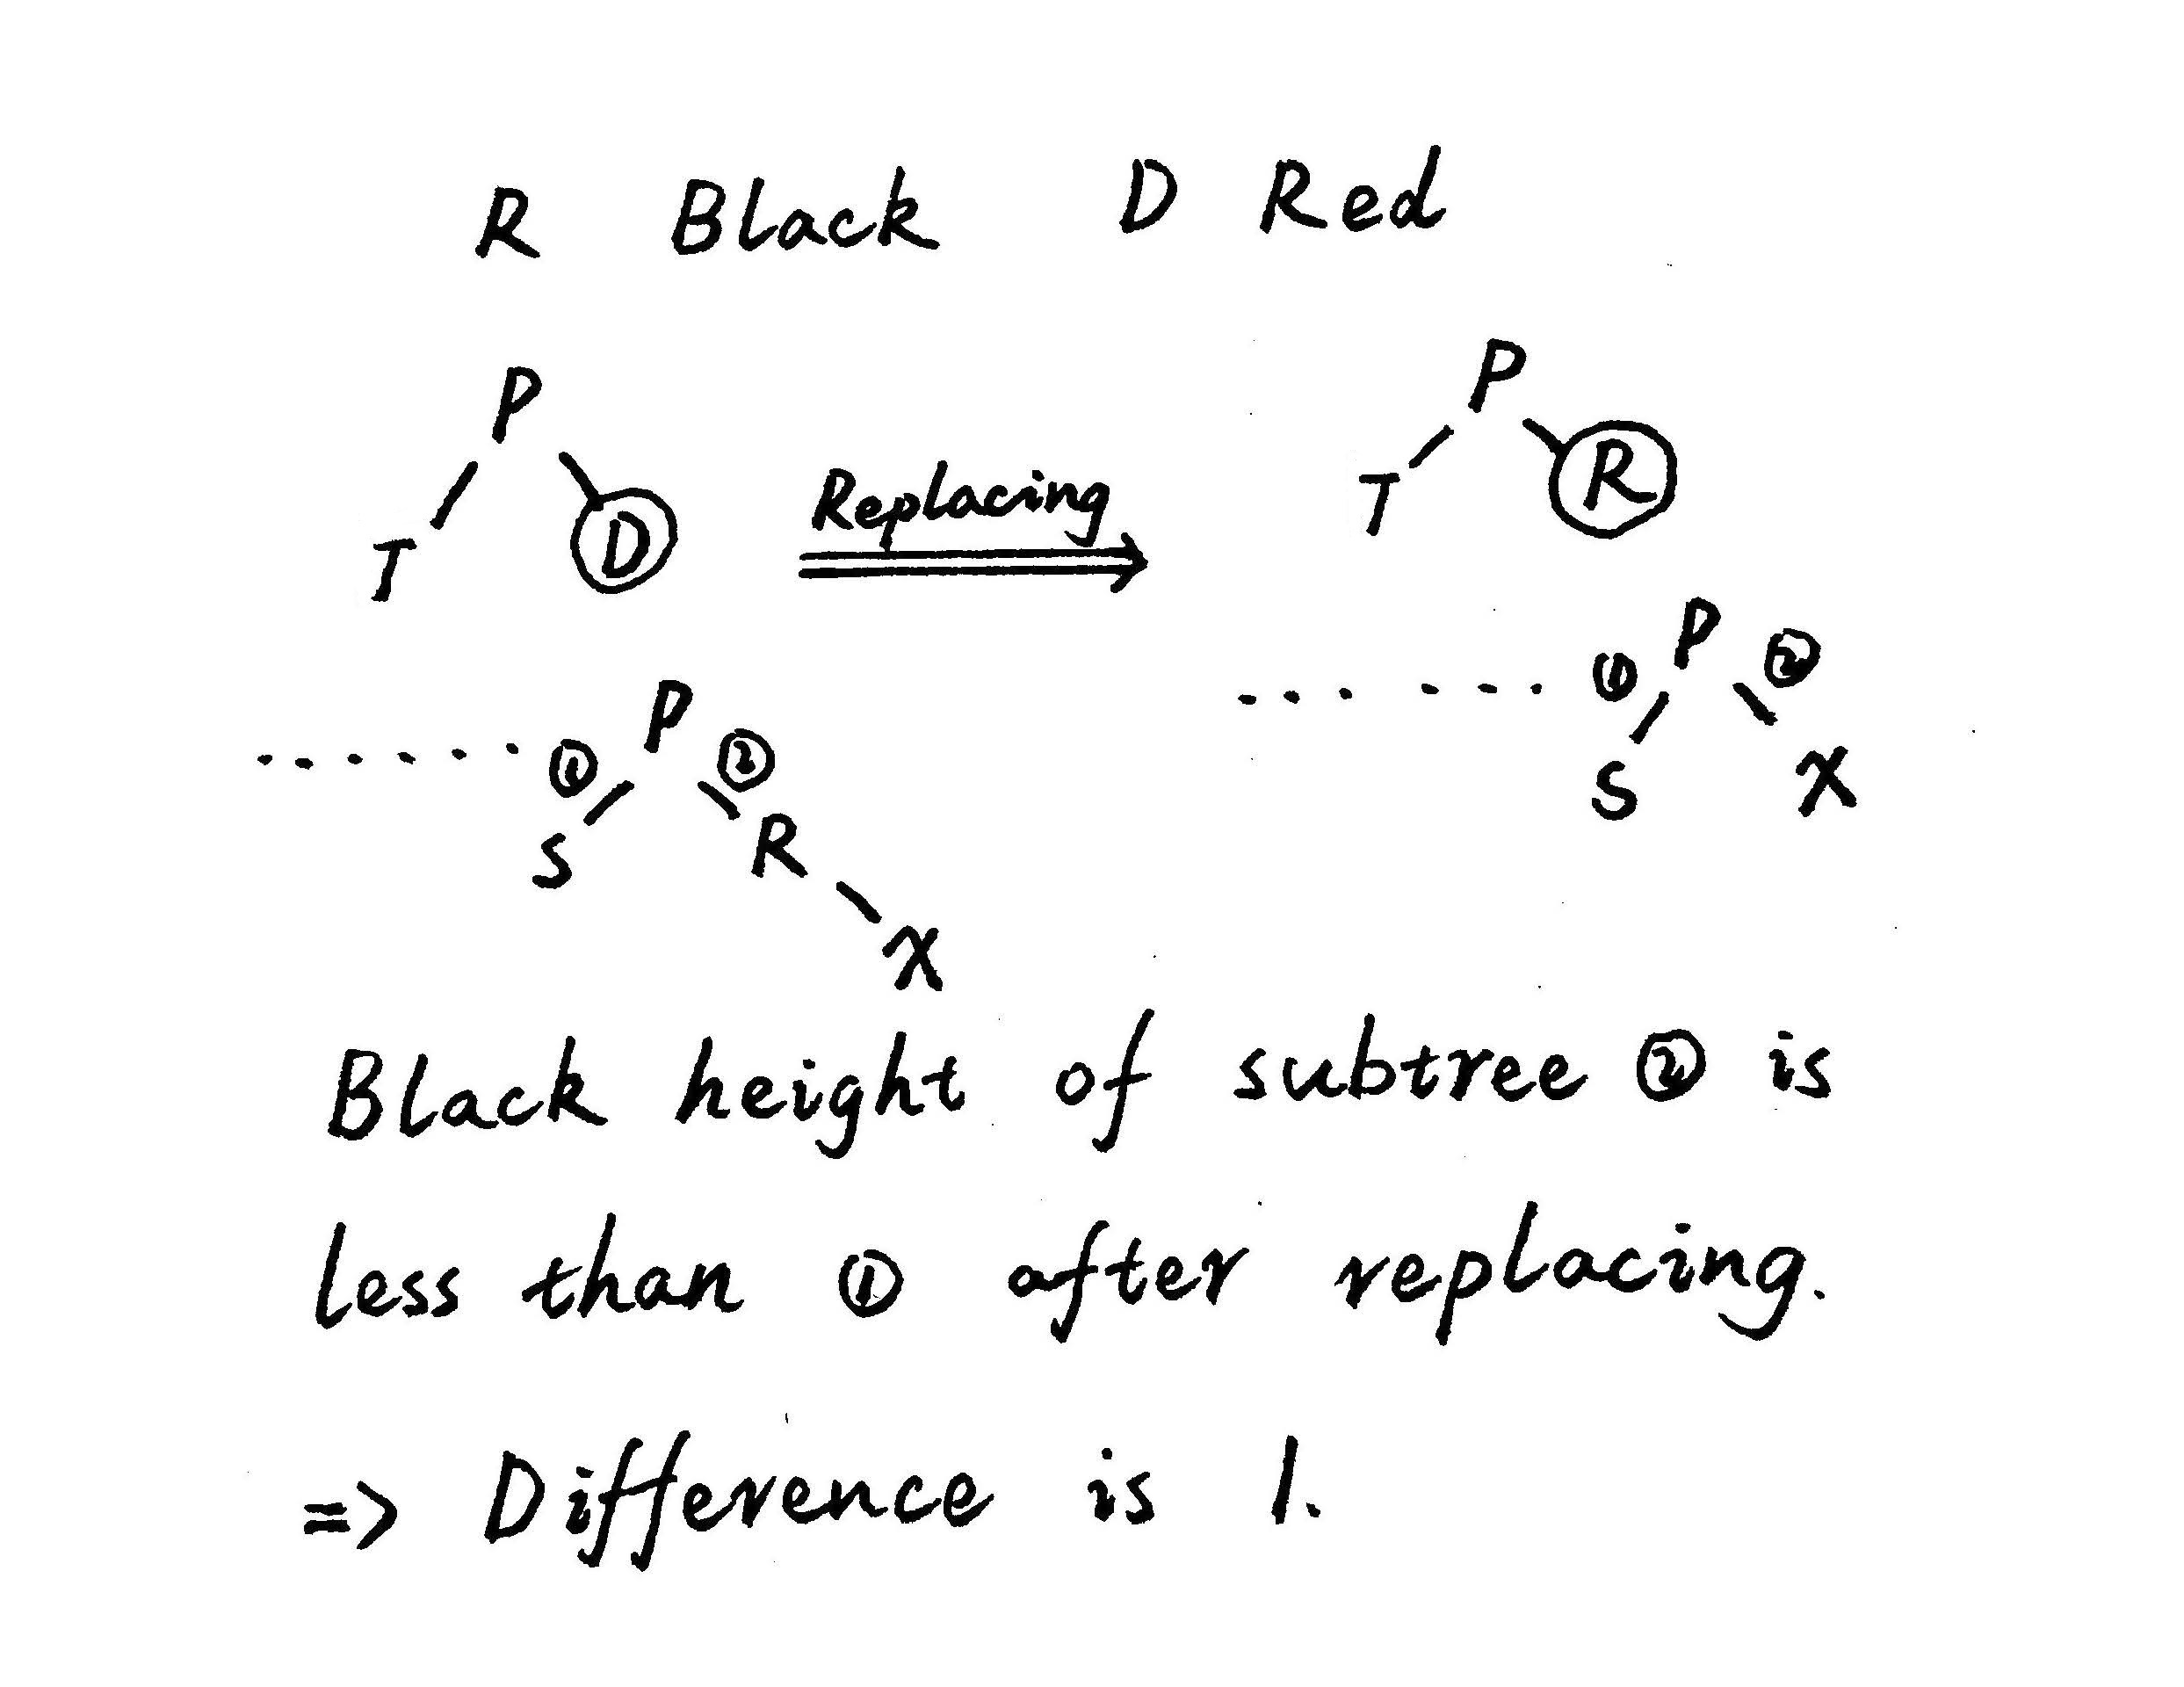 R Black D Red
P
T D
Replacing
P
T R
...... ① P ②
S R
X
... ... ① P ②
S X
Black height of subtree ② is
less than ① after replacing.
=> Difference is 1.